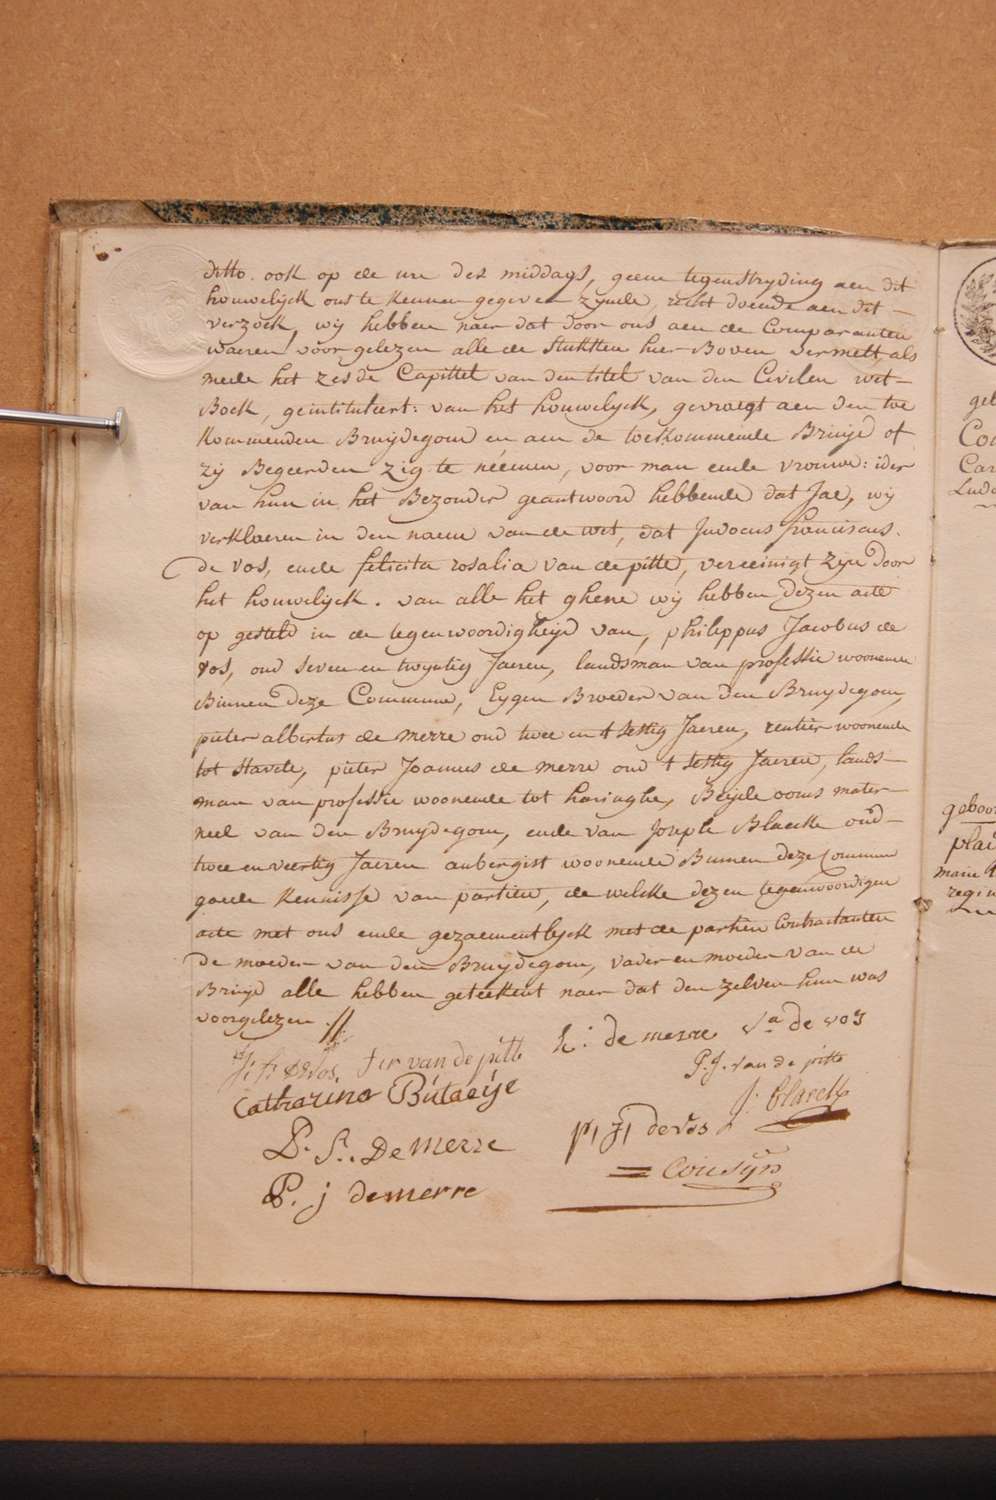 ditto. ook op de ure des middags, geene tegenstryding aen dit
houwelyck ons te kennen gegeven zynde, recht doende aen dit –
verzoek, wy hebben naer dat door ons aen de Comparanten
waeren voor gelezen alle de stukken hier Boven vermelt, als
mede het zesde Capittel van den titel van den Civilen wet –
Boek, geintituleert: van het houwelyck, gevraegt aen den toe
kommenden Bruydegom en aen de toekommende Bruyd of
zy Begeerden zig te néemen, voor man ende vrouwe: ider
van hun in het Bezonder geantwoord hebbende dat Jae, wy
verklaeren in den naem van de wet, dat Judocus franciscus.
de vos, ende felicita rosalia van de pitte, vereeinigt zyn door
het houwelyck. van alle het ghene wy hebben dezen acte
op gesteld in de tegenwoordigheyd van, philippus Jacobus de
vos, oud seven en twyntig Jaeren, landsman van professie woonende
Binnen deze Commune, Eygen Broeder van den Bruydegom,
pieter albertus de merre oud twee en tsestig Jaeren, rentier woonende
tot stavele, pieter Joannes de merre oud tsestig Jaeren, lands –
man van professie woonende tot haringhe, Beyde ooms mater
neel van den Bruydegom, ende van Joseph Blaecke oud –
twee en veertig Jaeren aubergist woonende Binnen deze Commune
goede kennisse van partien, de welcke dezen tegenwoordigen
acte met ons ende gezaementlyck met de partien Contractanten
de moeder van den Bruydegom, vader en moeder van de
Bruyd alle hebben geteekent naer dat den zelven hun was
voorgelezen. //
J: f: de vos. f r van de pitte
h: de merre va de vos
P. J. van de pitte
Catharina Butaeije
J: blaeck
P. J. de vos
P. De merre
= Cousyn
P. j demerre
gel
Co
Car
Lud
geboor
plae
marie
regin